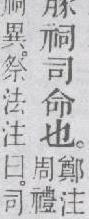 豚祠司命也。
鄭注
周禮
祠異。祭法注曰司